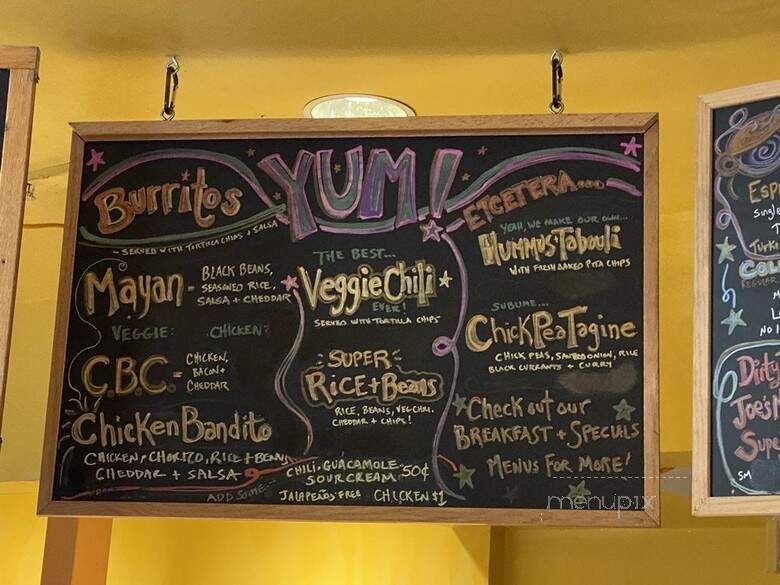 YUM!
Burritos
~ SERVED WITH TORTILLA CHIPS + SALSA
Mayan -
BLACK BEANS,
SEASONED RICE,
SALSA + CHEDDAR
VEGGIE: CHICKEN:
C.B.C. =
CHICKEN,
BACON +
CHEDDAR
Chicken Bandito
CHICKEN, CHORIZO, RICE + BEANS
CHEDDAR + SALSA
ADD SOME...
CHILI, GUACAMOLE
SOUR CREAM 50¢
JALAPEÑOS: FREE CHICKEN $1
THE BEST...
Veggie Chili
EVER!
SERVED WITH TORTILLA CHIPS
SUPER
RICE + Beans
RICE, BEANS, VEG CHILI,
CHEDDAR + CHIPS!
ETCETERA...
YEAH, WE MAKE OUR OWN...
HUMMUS + Tabouli
WITH FRESH BAKED PITA CHIPS
SUBLIME...
ChickPea Tagine
CHICK PEAS, SAUTEED ONION, RICE
BLACK CURRANTS ~ CURRY
Check out our
BREAKFAST + SPECIALS
MENUS FOR MORE!
menupix
Esp
Single
Turki
COL
REGULAR
NO I
Dirty
Joe's M
Sup
SM